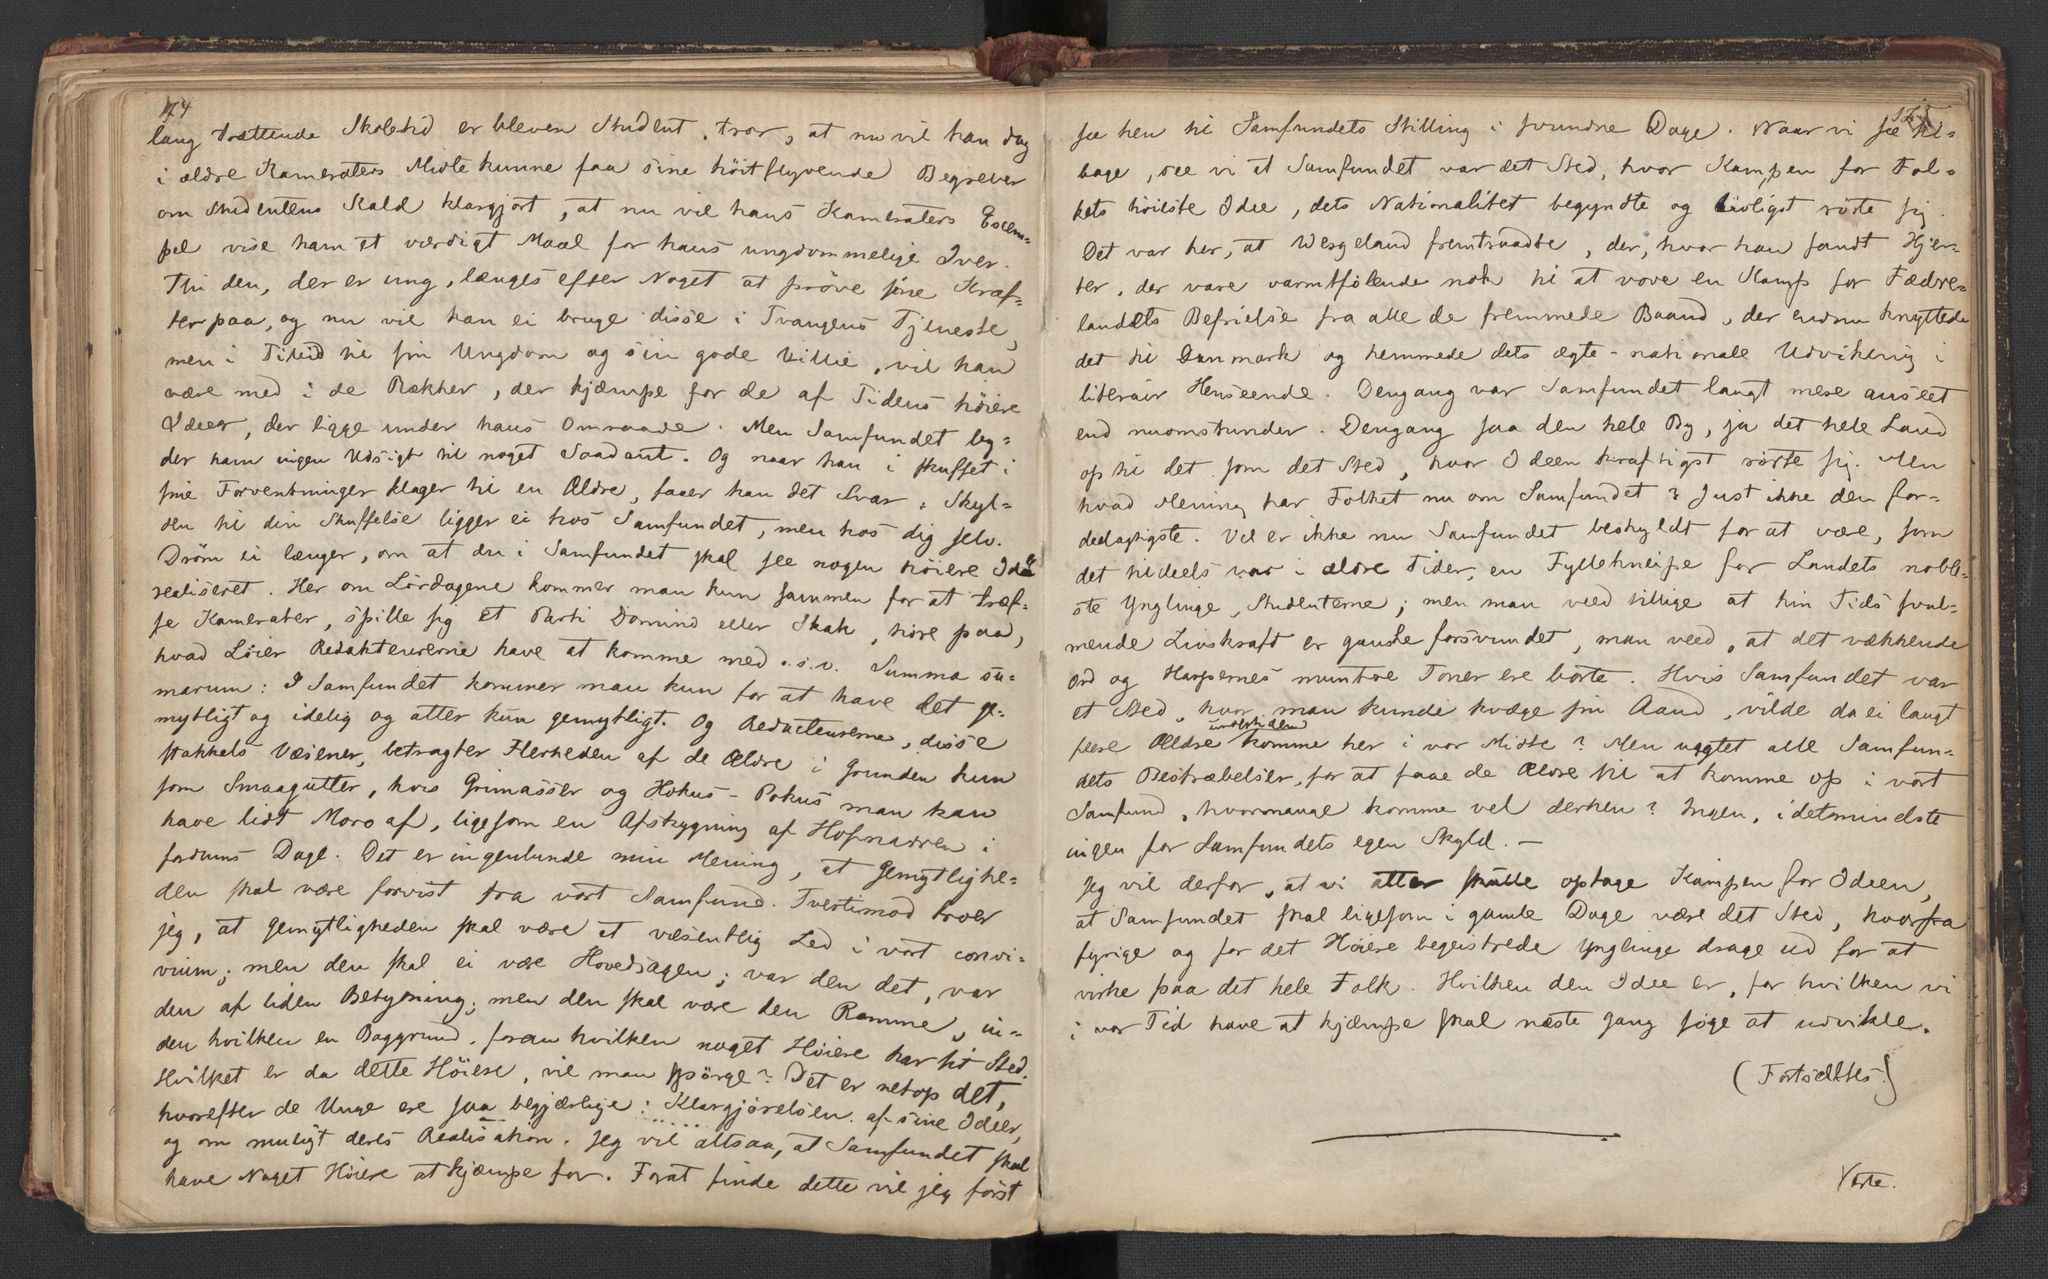 174
lang trættende Skoletid er bleven Student, tror, at nu vil han dog
i ældre Kameraters Midte kunne faa sine höitflyvende Begreber
om Studentens Kald klargjort, at nu vil hans Kameraters Exem-
pel vise ham et værdigt Maal for hans ungdommelige Iver.
Thi den, der er ung, længes efter Noget at pröve sine Kræf-
ter paa, og nu vil han ei bruge disse i Tvangens Tjeneste,
men i Tillid til sin Ungdom og sin gode Villie, vil han
være med i de Rækker, der kjæmpe for de af Tidens höiere
Ideer, der ligge under hans Omraade. Men Samfundet by-
der ham ingen Udsigt til noget Saadant. Og naar han i skuffet i
sine Forventninger klager til en Ældre, faaer han det Svar: Skyl-
den til din Skuffelse ligger ei hos Samfundet, men hos dig selv.
Dröm ei længer, om at du i Samfundet skal see nogen höiere Idé
realiseret. Her om Lördagene kommer man kun sammen for at træf-
fe Kamerater, spille sig et Parti Domino eller Skak, höre paa,
hvad Löier Redakteurerne have at komme med o.s.v. Summa su-
marum: I Samfundet kommer man kun for at have det ge-
mytligt og idelig og atter kun gemytligt. Og Redacteurerne, disse
stakkels Væsener, betragter Flerheden af de Ældre i Grunden kun
som Smaagutter, hvis Grimasser og Hokus-Pokus man kan
have lidt Moro af, ligesom en Afskygning af Hofnarren i
fordums Dage. Det er ingenlunde min Mening, at Gemytlighe-
den skal være forvist fra vort Samfund. Tvertimod troer
jeg, at Gemytligheden skal være et væsentlig Led i vort convi-
vium; men den skal ei være Hovedsagen; var den det, var
den af liden Betydning; men den skal være den Ramme, in-
den hvilken en Baggrund, foran hvilken noget Höiere har sit Sted.
Hvilket er da dette Höiere, vil man spörge? Det er netop det,
hvorefter de Unge ere saa begjærlige: Klargjörelsen af sine Ideer,
og om muligt deres Realisation. Jeg vil altsaa, at Samfundet skal
have Noget Höiere at kjæmpe for. Forat finde dette vil jeg först
175
se hen til Samfundets Stilling i svundne Dage. Naar vi se til-
bage, see vi at Samfundet var det Sted, hvor Kampen for Fol-
kets höieste Idee, dets Nationalitet begyndte og livligst rörte sig.
Det var her, at Wergeland fremtraadte, der, hvor han fandt Hjer-
ter, der vare varmtfölende nok til at vove en Kamp for Fædre-
landets Befrielse fra alle de fremmede Baand, der endnu knyttede
det til Danmark og hemmede dets ægte-nationale Udvikling i
literair Henseende. Dengang var Samfundet langt mere anseet
end nuomstunder. Dengang saa den hele By, ja det hele Land
op til det som det Sted, hvor Ideen kraftigst rörte sig. Men
hvad Mening har Folket nu om Samfundet? Just ikke den for-
deelagtigste. Vel er ikke nu Samfundet beskyldt for at være, som
det tildeels var i ældre Tider, en Fyllekneipe for Landets noble-
ste Ynglinge, Studenterne; men man veed tillige at hin Tids svul-
mende Livskraft er ganske forsvundet, man veed, at det vækkende
Ord og Harpernes muntre Toner ere borte. Hvis Samfundet var
et Sted, hvor man kunde kvæge sin Aand, vilde da ei langt
flere Ældre undertiden komme her i vor Midte? Men uagtet alle Samfun-
dets Bestræbelser, for at faae de Ældre til at komme op i vort
Samfund, hvormange komme vel derhen? Ingen, idetmindste
ingen for Samfundets egen Skyld. —
Jeg vil derfor, at vi atter skulle optage Kampen for Ideen,
at Samfundet skal ligesom i gamle Dage være det Sted, hvorfra
fyrige og for det Höiere begeistrede Ynglinge drage ud for at
virke paa det hele Folk. Hvilken den Idee er, for hvilken vi
i vor Tid have at kjæmpe skal næste Gang söge at udvikle.
(Fortsættes.)